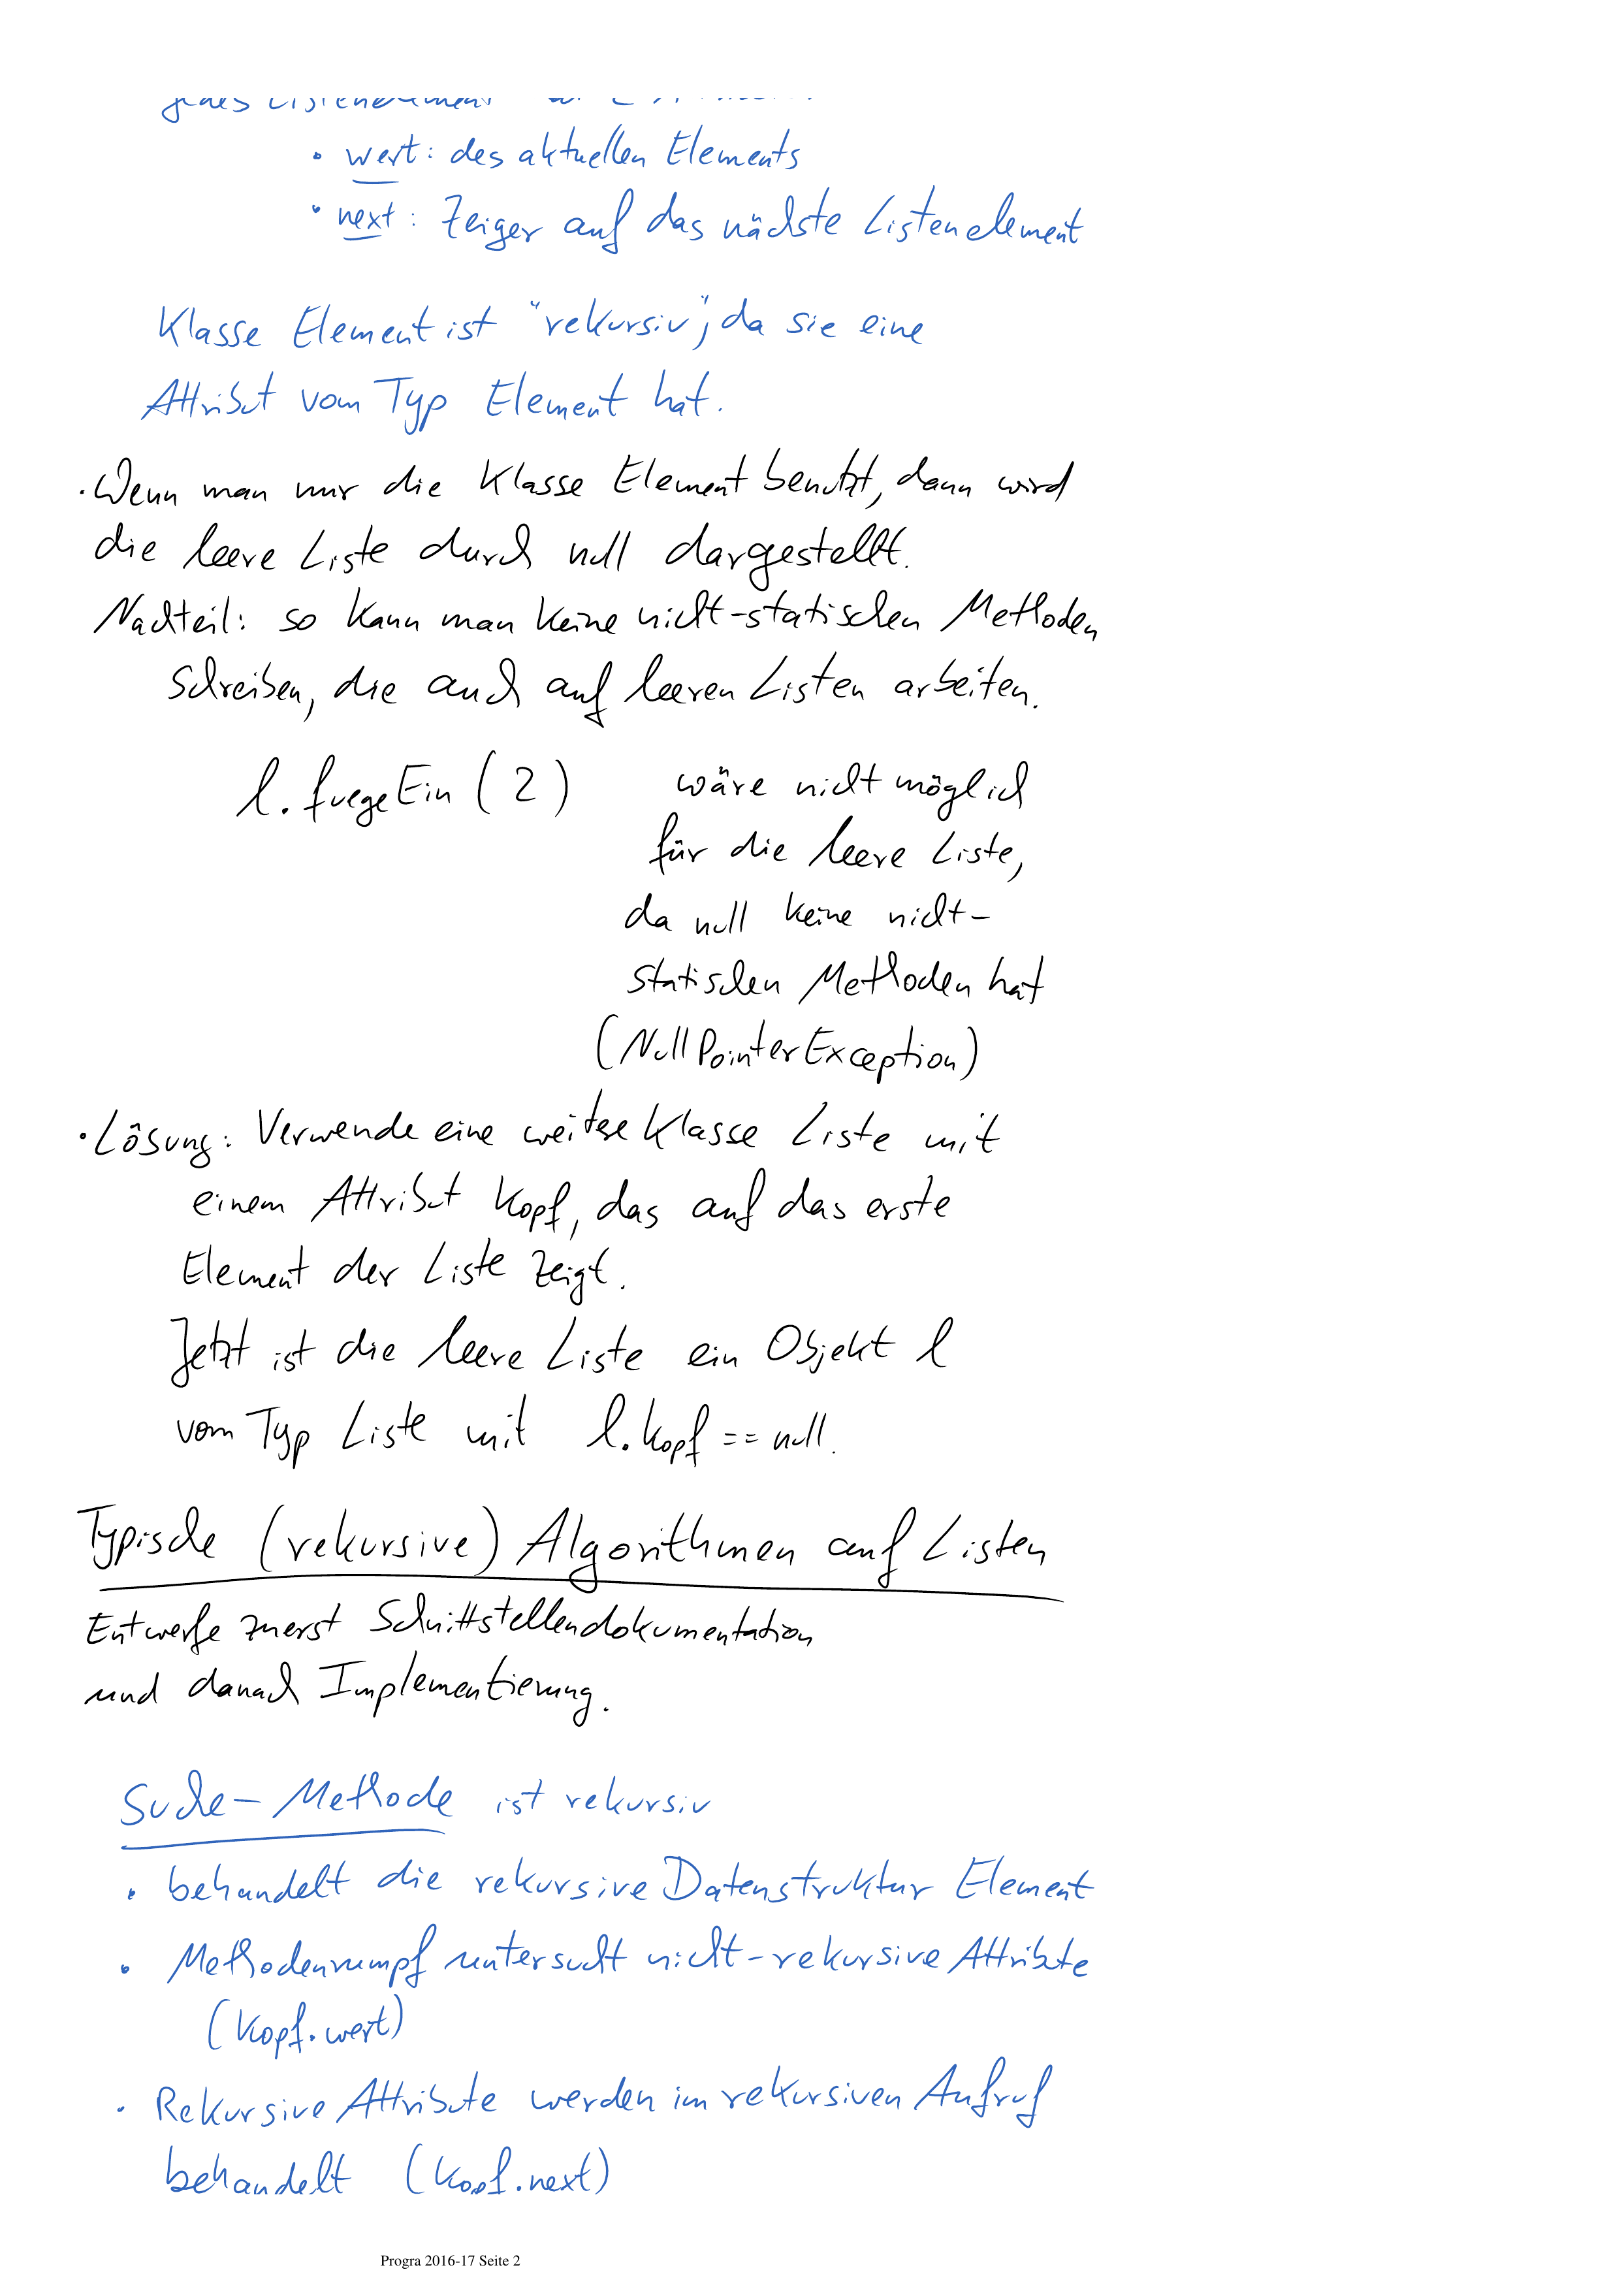 jedes Listenelement
• wert: des aktuellen Elements
• next: Zeiger auf das nächste Listenelement
Klasse Element ist "rekursiv", da sie eine
Attribut vom Typ Element hat.
• Wenn man nur die Klasse Element benutzt, dann wird
die leere Liste durch null dargestellt.
Nachteil: so kann man keine nicht-statischen Methoden
schreiben, die auch auf leeren Listen arbeiten.
l.fuegeEin(2) wäre nicht möglich
für die leere Liste,
da null keine nicht-
statischen Methoden hat
(NullPointerException)
• Lösung: Verwende eine weitere Klasse Liste mit
einem Attribut kopf, das auf das erste
Element der Liste zeigt.
Jetzt ist die leere Liste ein Objekt l
vom Typ Liste mit l.kopf == null.
Typische (rekursive) Algorithmen auf Listen
Entwerfe zuerst Schnittstellendokumentation
und danach Implementierung.
Suche-Methode ist rekursiv
• behandelt die rekursive Datenstruktur Element
• Methodenrumpf untersucht nicht-rekursive Attribute
(kopf.wert)
• Rekursive Attribute werden im rekursiven Aufruf
behandelt (kopf.next)
Progra 2016-17 Seite 2